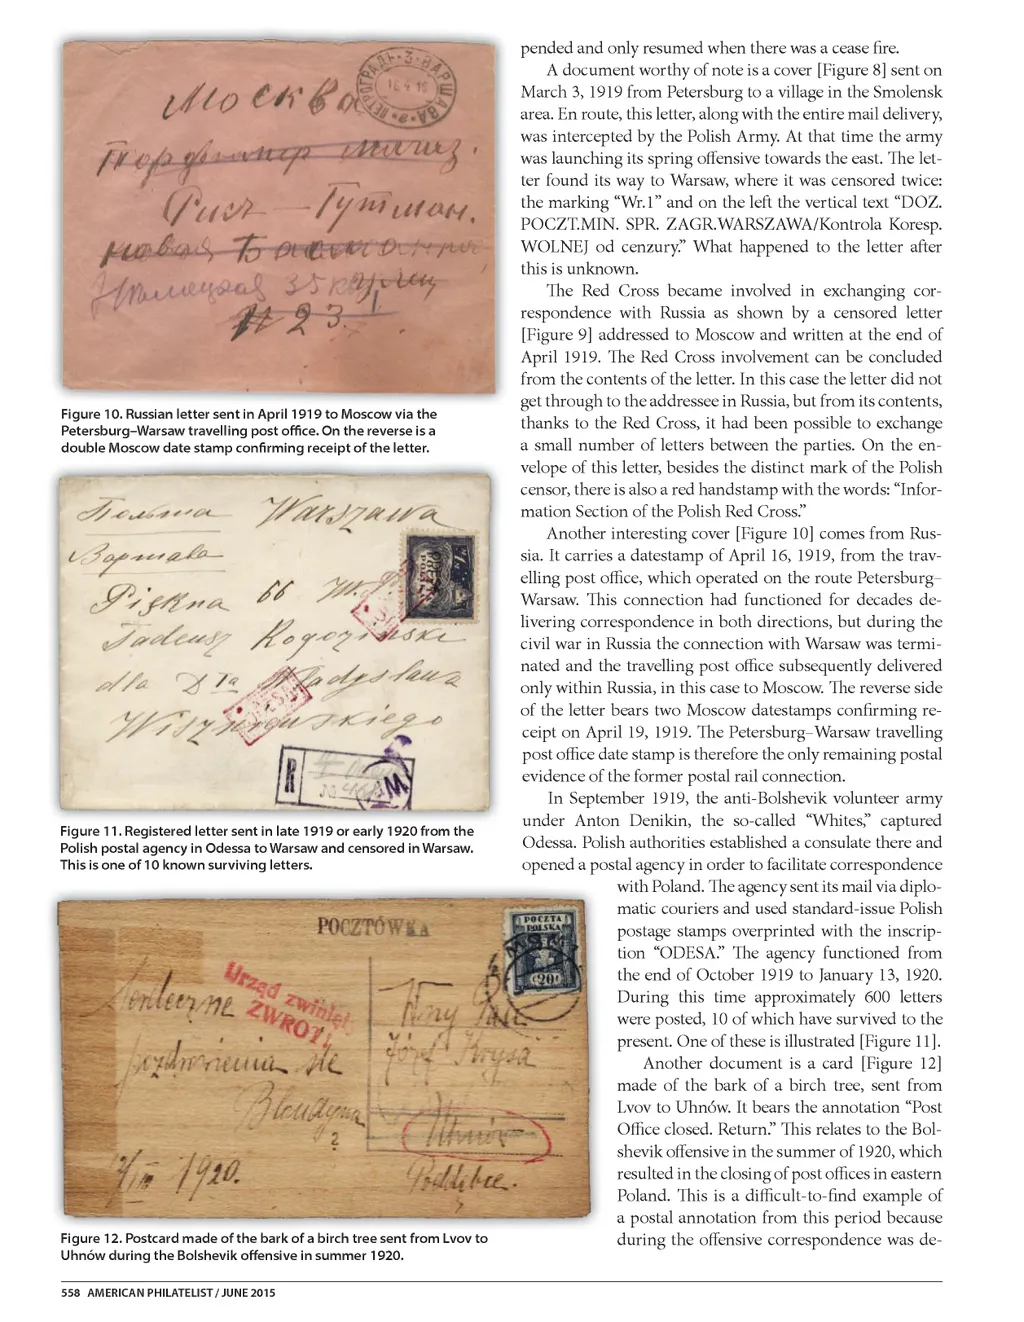 Москва
ПЕТРОГРАДЪ-3-ВАРШАВА
Рикъ — Гутман.
35
№ 23.
Figure 10. Russian letter sent in April 1919 to Moscow via the
Petersburg–Warsaw travelling post office. On the reverse is a
double Moscow date stamp confirming receipt of the letter.
Польша Warszawa
Варшава
Piękna 66
Tadeusz Rogoziński
dla Dra Władysława
R
Figure 11. Registered letter sent in late 1919 or early 1920 from the
Polish postal agency in Odessa to Warsaw and censored in Warsaw.
This is one of 10 known surviving letters.
POCZTÓWKA
POCZTA
POLSKA
20
Urząd zwinięty
ZWROT
Serdeczne
pozdrowienia śle
Józef Krysa
Uhnów
1920.
Figure 12. Postcard made of the bark of a birch tree sent from Lvov to
Uhnów during the Bolshevik offensive in summer 1920.
pended and only resumed when there was a cease fire.
A document worthy of note is a cover [Figure 8] sent on
March 3, 1919 from Petersburg to a village in the Smolensk
area. En route, this letter, along with the entire mail delivery,
was intercepted by the Polish Army. At that time the army
was launching its spring offensive towards the east. The let-
ter found its way to Warsaw, where it was censored twice:
the marking “Wr.1” and on the left the vertical text “DOZ.
POCZT.MIN. SPR. ZAGR.WARSZAWA/Kontrola Koresp.
WOLNEJ od cenzury.” What happened to the letter after
this is unknown.
The Red Cross became involved in exchanging cor-
respondence with Russia as shown by a censored letter
[Figure 9] addressed to Moscow and written at the end of
April 1919. The Red Cross involvement can be concluded
from the contents of the letter. In this case the letter did not
get through to the addressee in Russia, but from its contents,
thanks to the Red Cross, it had been possible to exchange
a small number of letters between the parties. On the en-
velope of this letter, besides the distinct mark of the Polish
censor, there is also a red handstamp with the words: “Infor-
mation Section of the Polish Red Cross.”
Another interesting cover [Figure 10] comes from Rus-
sia. It carries a datestamp of April 16, 1919, from the trav-
elling post office, which operated on the route Petersburg–
Warsaw. This connection had functioned for decades de-
livering correspondence in both directions, but during the
civil war in Russia the connection with Warsaw was termi-
nated and the travelling post office subsequently delivered
only within Russia, in this case to Moscow. The reverse side
of the letter bears two Moscow datestamps confirming re-
ceipt on April 19, 1919. The Petersburg–Warsaw travelling
post office date stamp is therefore the only remaining postal
evidence of the former postal rail connection.
In September 1919, the anti-Bolshevik volunteer army
under Anton Denikin, the so-called “Whites,” captured
Odessa. Polish authorities established a consulate there and
opened a postal agency in order to facilitate correspondence
with Poland. The agency sent its mail via diplo-
matic couriers and used standard-issue Polish
postage stamps overprinted with the inscrip-
tion “ODESA.” The agency functioned from
the end of October 1919 to January 13, 1920.
During this time approximately 600 letters
were posted, 10 of which have survived to the
present. One of these is illustrated [Figure 11].
Another document is a card [Figure 12]
made of the bark of a birch tree, sent from
Lvov to Uhnów. It bears the annotation “Post
Office closed. Return.” This relates to the Bol-
shevik offensive in the summer of 1920, which
resulted in the closing of post offices in eastern
Poland. This is a difficult-to-find example of
a postal annotation from this period because
during the offensive correspondence was de-
558 AMERICAN PHILATELIST / JUNE 2015